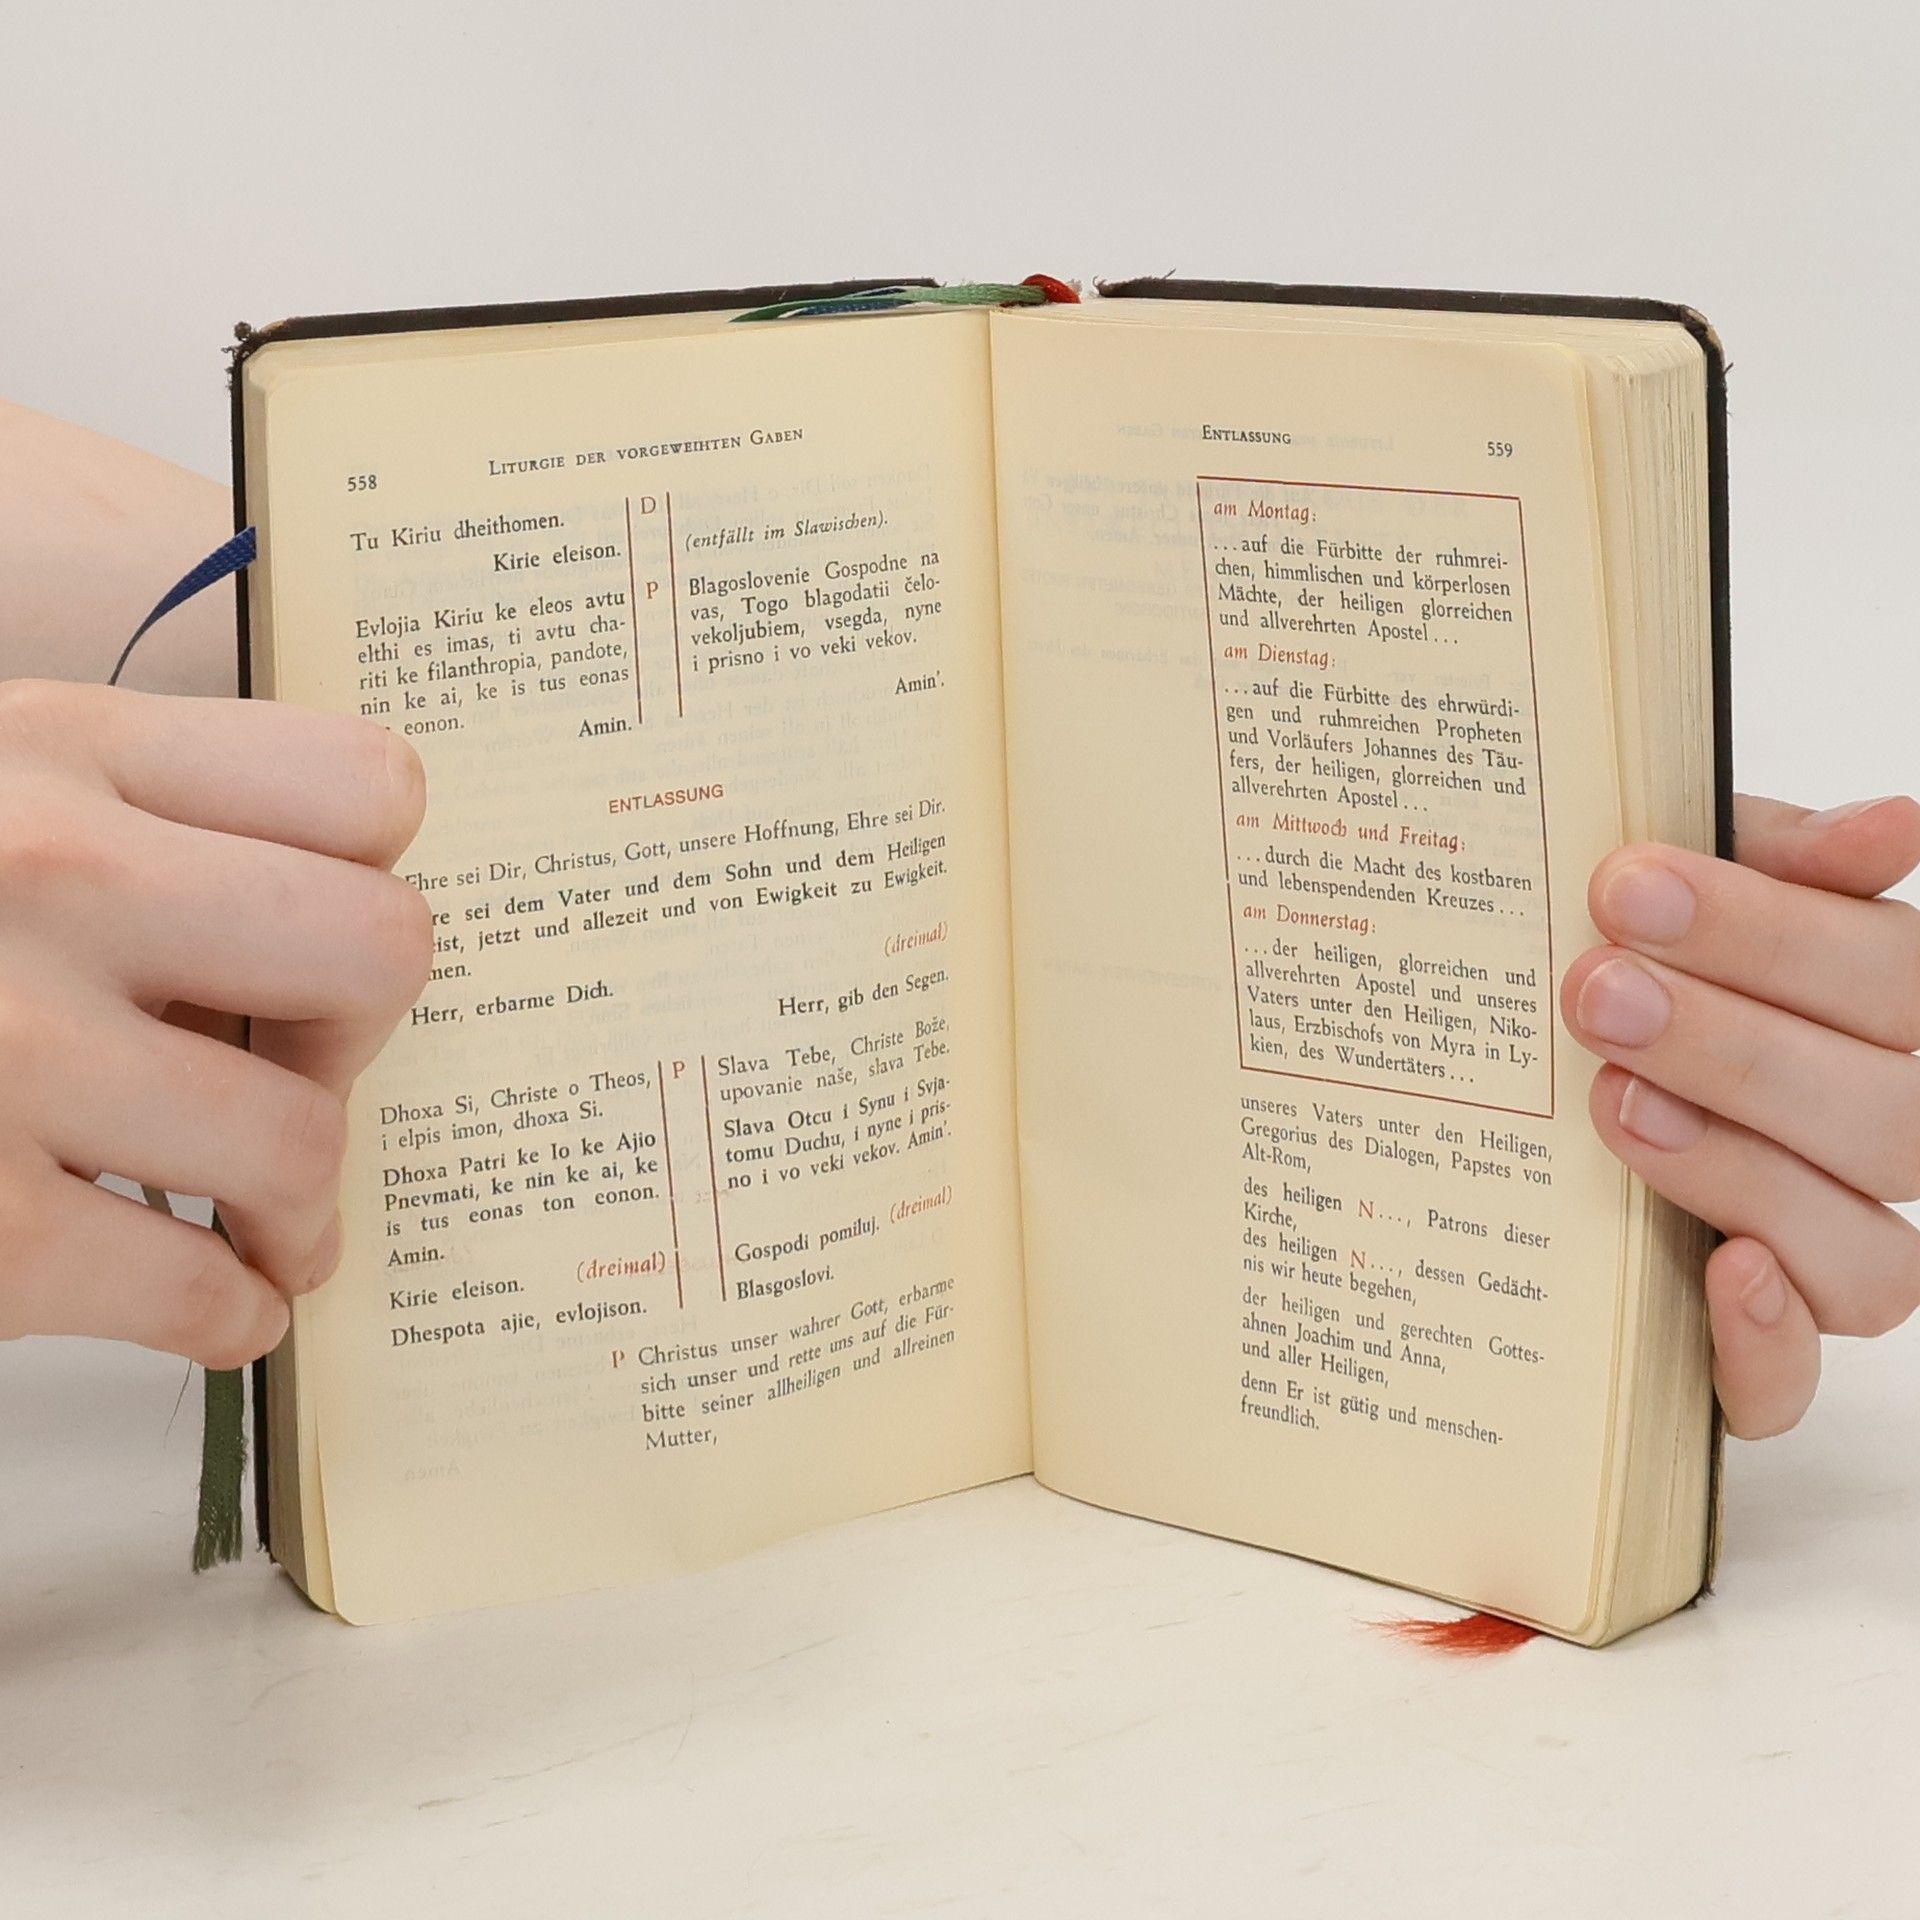 558
LITURGIE DER VORGEWEIHTEN GABEN
Tu Kiriu dheithomen.
Kirie eleison.
Evlojia Kiriu ke eleos avtu
elthi es imas, ti avtu cha-
riti ke filanthropia, pandote,
nin ke ai, ke is tus eonas
eonon.
Amin.
D
P
(entfällt im Slawischen).
Blagoslovenie Gospodne na
vas, Togo blagodatii čelo-
vekoljubiem, vsegda, nyne
i prisno i vo veki vekov.
Amin'.
ENTLASSUNG
Ehre sei Dir, Christus, Gott, unsere Hoffnung, Ehre sei Dir.
re sei dem Vater und dem Sohn und dem Heiligen
ist, jetzt und allezeit und von Ewigkeit zu Ewigkeit.
men.
(dreimal)
Herr, erbarme Dich.
Herr, gib den Segen.
Dhoxa Si, Christe o Theos,
i elpis imon, dhoxa Si.
Dhoxa Patri ke Io ke Ajio
Pnevmati, ke nin ke ai, ke
is tus eonas ton eonon.
Amin.
(dreimal)
Kirie eleison.
Dhespota ajie, evlojison.
P
Slava Tebe, Christe Bože,
upovanie naše, slava Tebe.
Slava Otcu i Synu i Svja-
tomu Duchu, i nyne i pris-
no i vo veki vekov. Amin'.
Gospodi pomiluj. (dreimal)
Blasgoslovi.
P Christus unser wahrer Gott, erbarme
sich unser und rette uns auf die Für-
bitte seiner allheiligen und allreinen
Mutter,
ENTLASSUNG
559
am Montag:
...auf die Fürbitte der ruhmrei-
chen, himmlischen und körperlosen
Mächte, der heiligen glorreichen
und allverehrten Apostel...
am Dienstag:
...auf die Fürbitte des ehrwürdi-
gen und ruhmreichen Propheten
und Vorläufers Johannes des Täu-
fers, der heiligen, glorreichen und
allverehrten Apostel...
am Mittwoch und Freitag:
...durch die Macht des kostbaren
und lebenspendenden Kreuzes...
am Donnerstag:
...der heiligen, glorreichen und
allverehrten Apostel und unseres
Vaters unter den Heiligen, Niko-
laus, Erzbischofs von Myra in Ly-
kien, des Wundertäters...
unseres Vaters unter den Heiligen,
Gregorius des Dialogen, Papstes von
Alt-Rom,
des heiligen N..., Patrons dieser
Kirche,
des heiligen N..., dessen Gedächt-
nis wir heute begehen,
der heiligen und gerechten Gottes-
ahnen Joachim und Anna,
und aller Heiligen,
denn Er ist gütig und menschen-
freundlich.